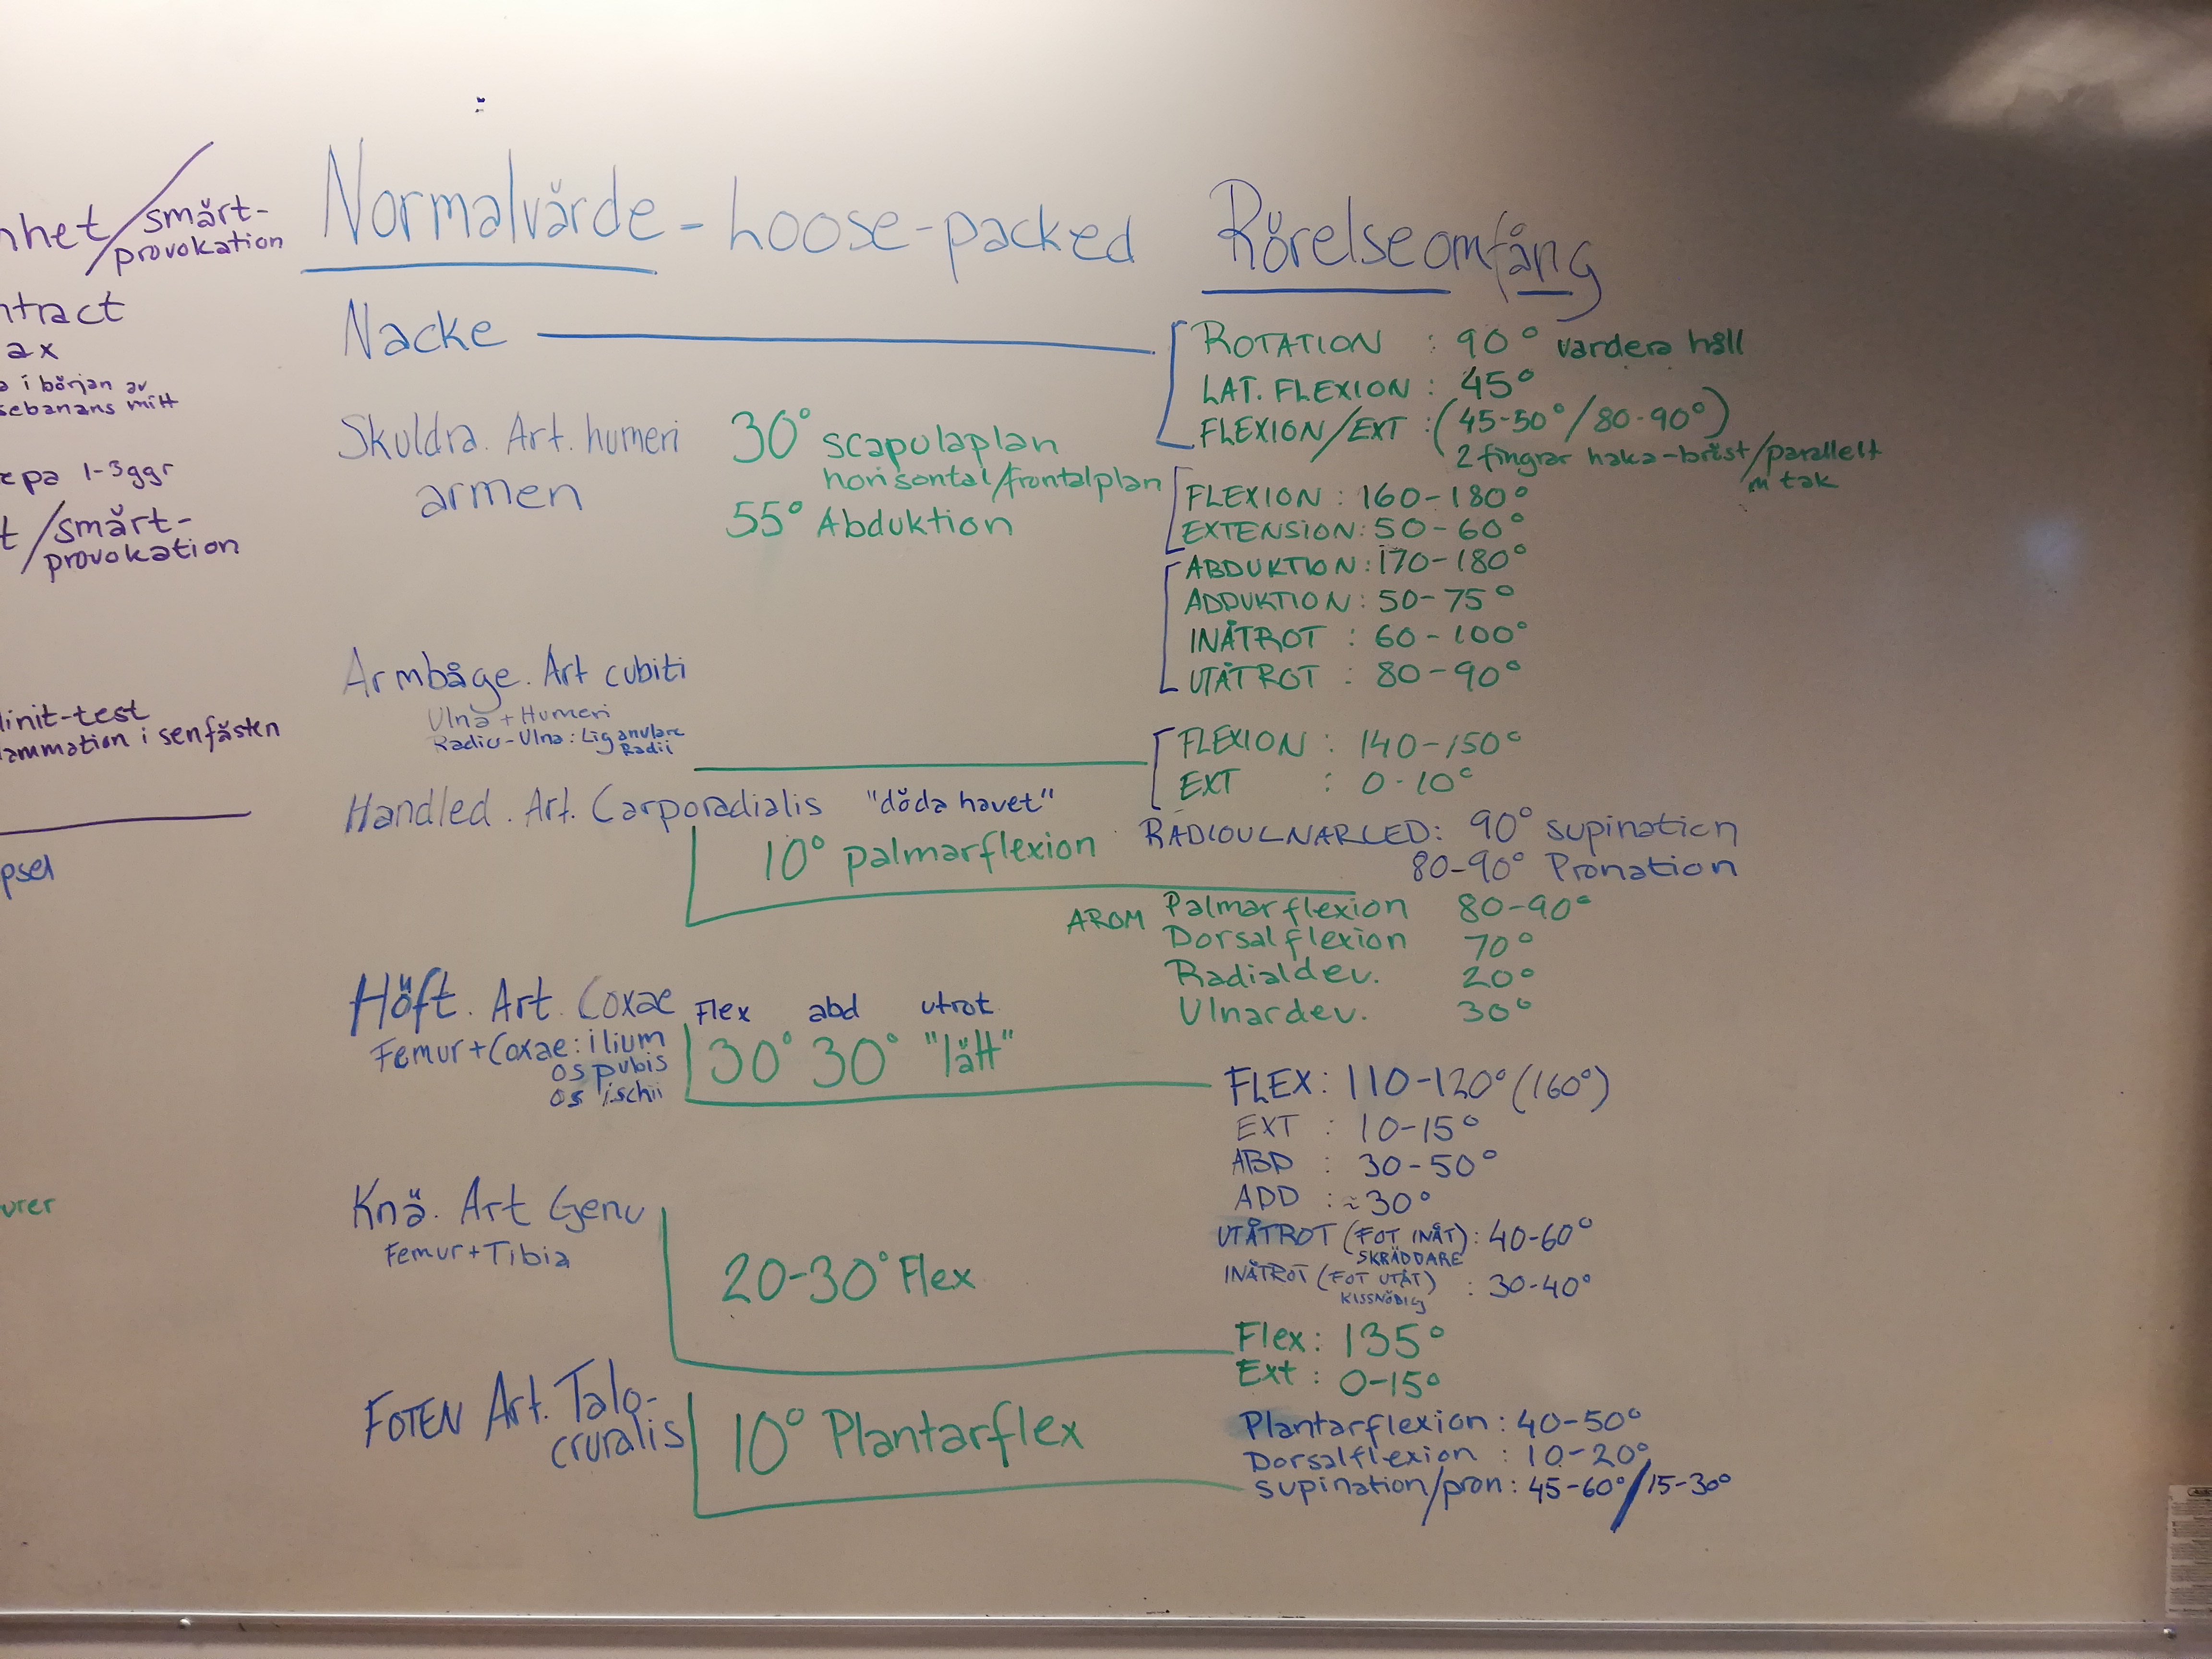 smärt-
provokation
ax
i början av
mitt
1-3ggr
smärt-
provokation
i senfästen
Normalvärde - Loose-packed
Nacke
Skuldra. Art. humeri
armen
30° scapulaplan
horisontal/frontalplan
55° Abduktion
Armbåge. Art cubiti
Ulna + Humeri
Radio-Ulna: Lig anulare
Radii
Handled. Art. Carporadialis "döda havet"
10° palmarflexion
Höft. Art. Coxae Flex abd utrot
Femur+Coxae: ilium
os pubis
os ischii
30° 30° "lätt"
Knä. Art Genu
Femur+Tibia
20-30° Flex
FOTEN Art. Talo-
cruralis
10° Plantarflex
Rörelseomfång
ROTATION : 90° vardera håll
LAT. FLEXION : 45°
FLEXION/EXT : (45-50°/80-90°)
2 fingrar haka-bröst/parallellt
m tak
FLEXION : 160-180°
EXTENSION: 50-60°
ABDUKTION: 170-180°
ADDUKTION: 50-75°
INÅTROT : 60-100°
UTÅTROT : 80-90°
FLEXION : 140-150°
EXT : 0-10°
RADIOULNARLED: 90° supination
80-90° Pronation
AROM Palmarflexion 80-90°
Dorsalflexion 70°
Radialdev. 20°
Ulnardev. 30°
FLEX: 110-120° (160°)
EXT : 10-15°
ABD : 30-50°
ADD : ≈30°
UTÅTROT (FOT INÅT): 40-60°
SKRÄDDARE
INÅTROT (FOT UTÅT) : 30-40°
KISSNÖDIG
Flex: 135°
Ext : 0-15°
Plantarflexion: 40-50°
Dorsalflexion : 10-20°
supination/pron: 45-60°/15-30°